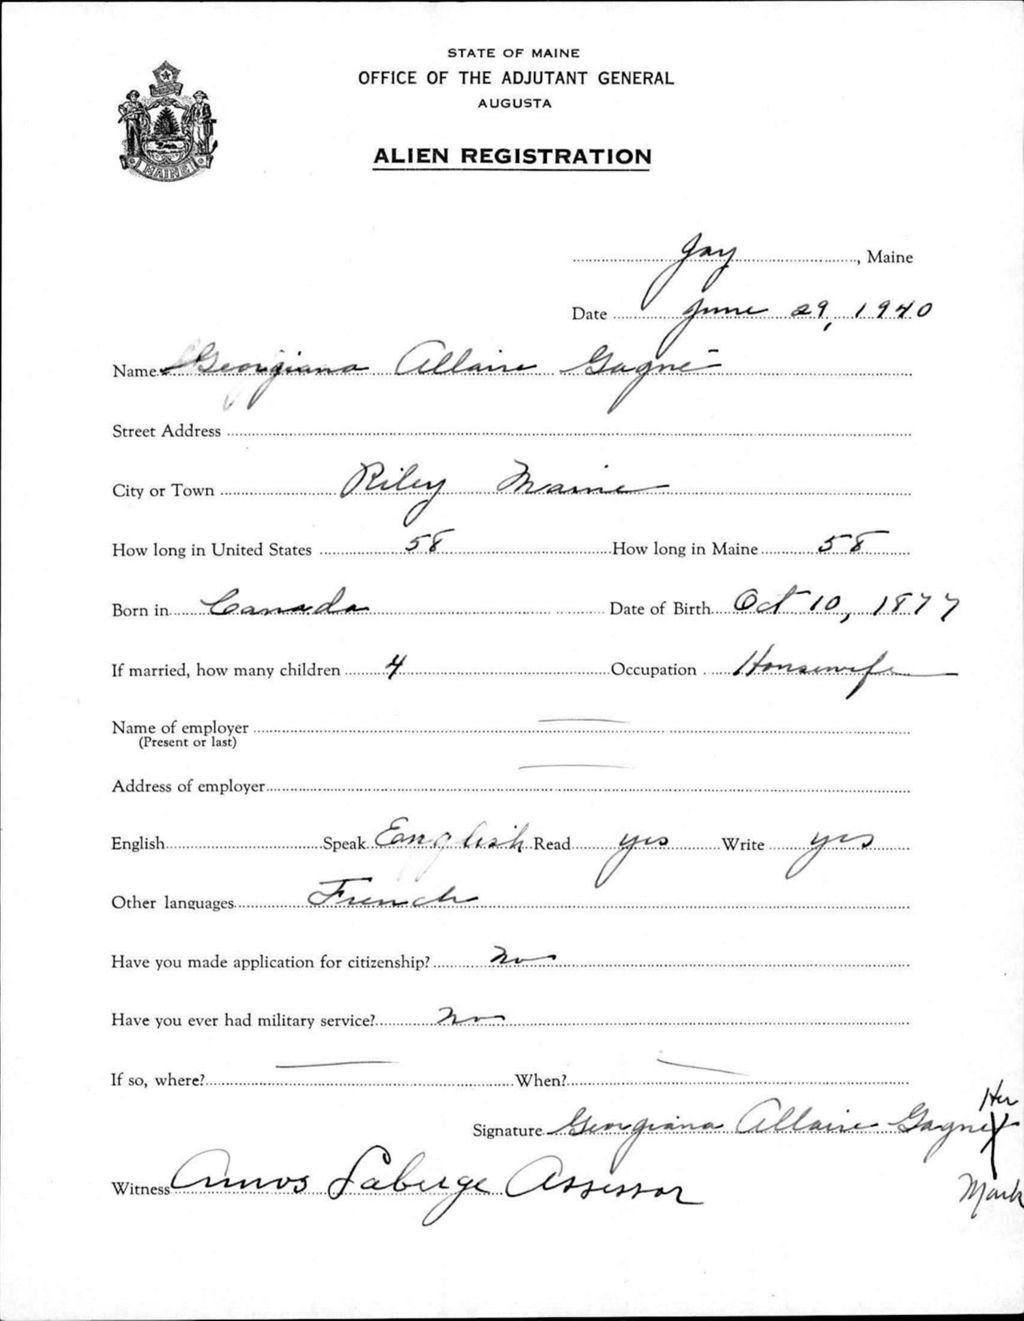 STATE OF MAINE
OFFICE OF THE ADJUTANT GENERAL
AUGUSTA
ALIEN REGISTRATION
MAINE
Jay, Maine
Date June 29, 1940
Name Georgiana Allaire Gagné
Street Address
City or Town Riley Maine
How long in United States 58 How long in Maine 58
Born in Canada Date of Birth Oct 10, 1877
If married, how many children 4 Occupation Housewife
Name of employer
(Present or last)
Address of employer
English Speak English Read yes Write yes
Other languages French
Have you made application for citizenship? No
Have you ever had military service? No
If so, where? When?
Her
Signature Georgiana Allaire Gagne X
Witness Amos Laberge Assessor
Mark